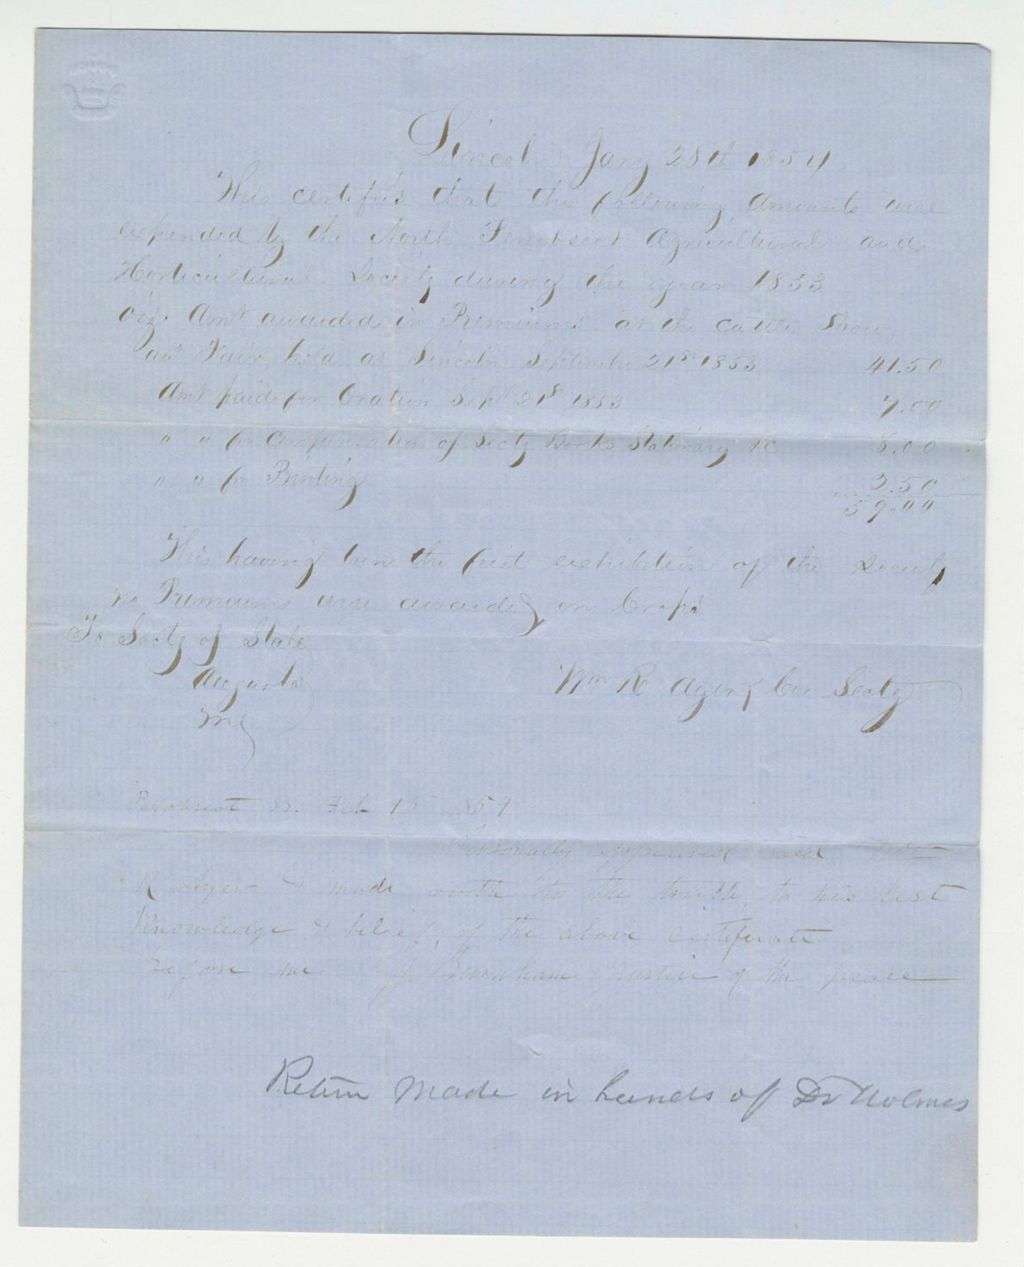 Lincoln Jany 28th 1854
This certifies that the following Amounts were
expended by the North Penobscot Agricultural and
Horticultural Society during the year 1853
viz. Amt awarded in Premiums at the cattle Show
and Fair held at Lincoln September 21st 1853 41.50
Amt paid for Oration Sept 21st 1853 7.00
" " for Compensation of Secty Books Stationary &C 8.00
" " for Printing 2.50
59.00
This having been the first exhibition of the Society
no Premiums were awarded on Crops
To Secty of State
Augusta
Me
Wm R Ayer Cor Secty
Penobscot ss. Feb 1854
Personally appeared Wm
R Ayer & made oath to the truth to his best
Knowledge & belief of the above certificate
Before me Burnham Justice of the peace
Return Made in hands of Dr Holmes